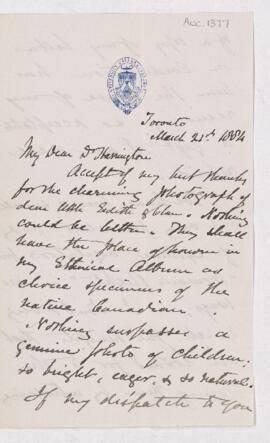 Acc. 1377
Toronto
March 21st 1884
My Dear Dr Harrington
Accept of my best thanks
for the charming photograph of
dear little Edith & Clare. Nothing
could be better. They shall
have the place of honour in
my Ethnical Album as
choice specimens of the
native Canadian.
Nothing surpasses a
genuine photo of children:
so bright, eager, & so natural.
If my dispatch to you